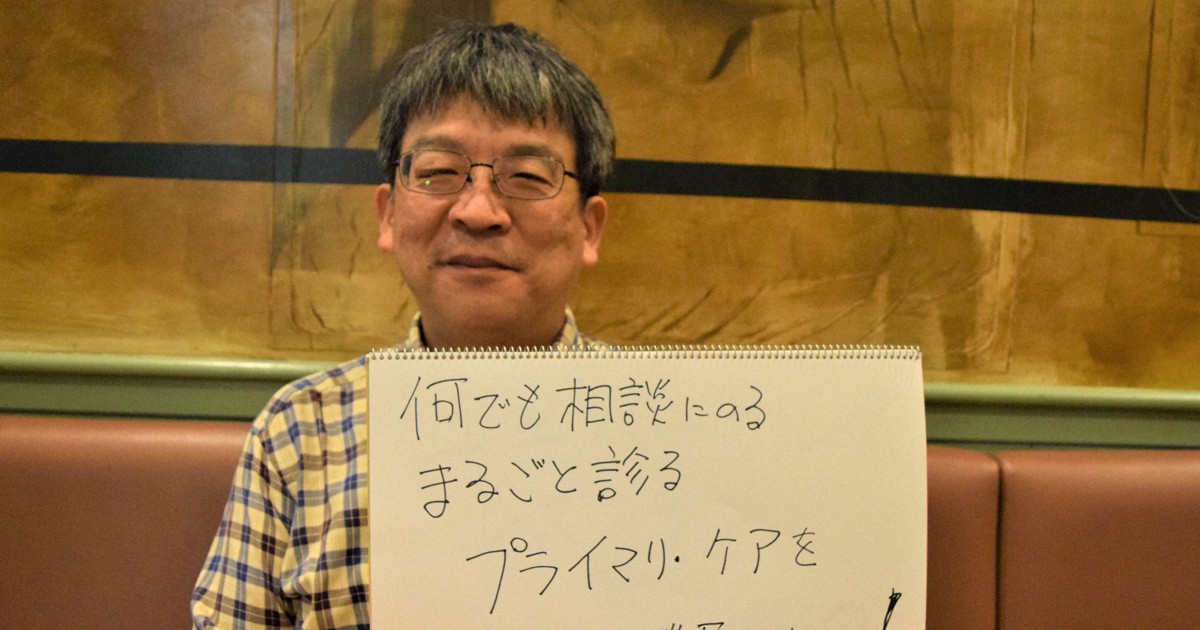 何でも相談にのる
まるごと診る
プライマリ・ケアを
!